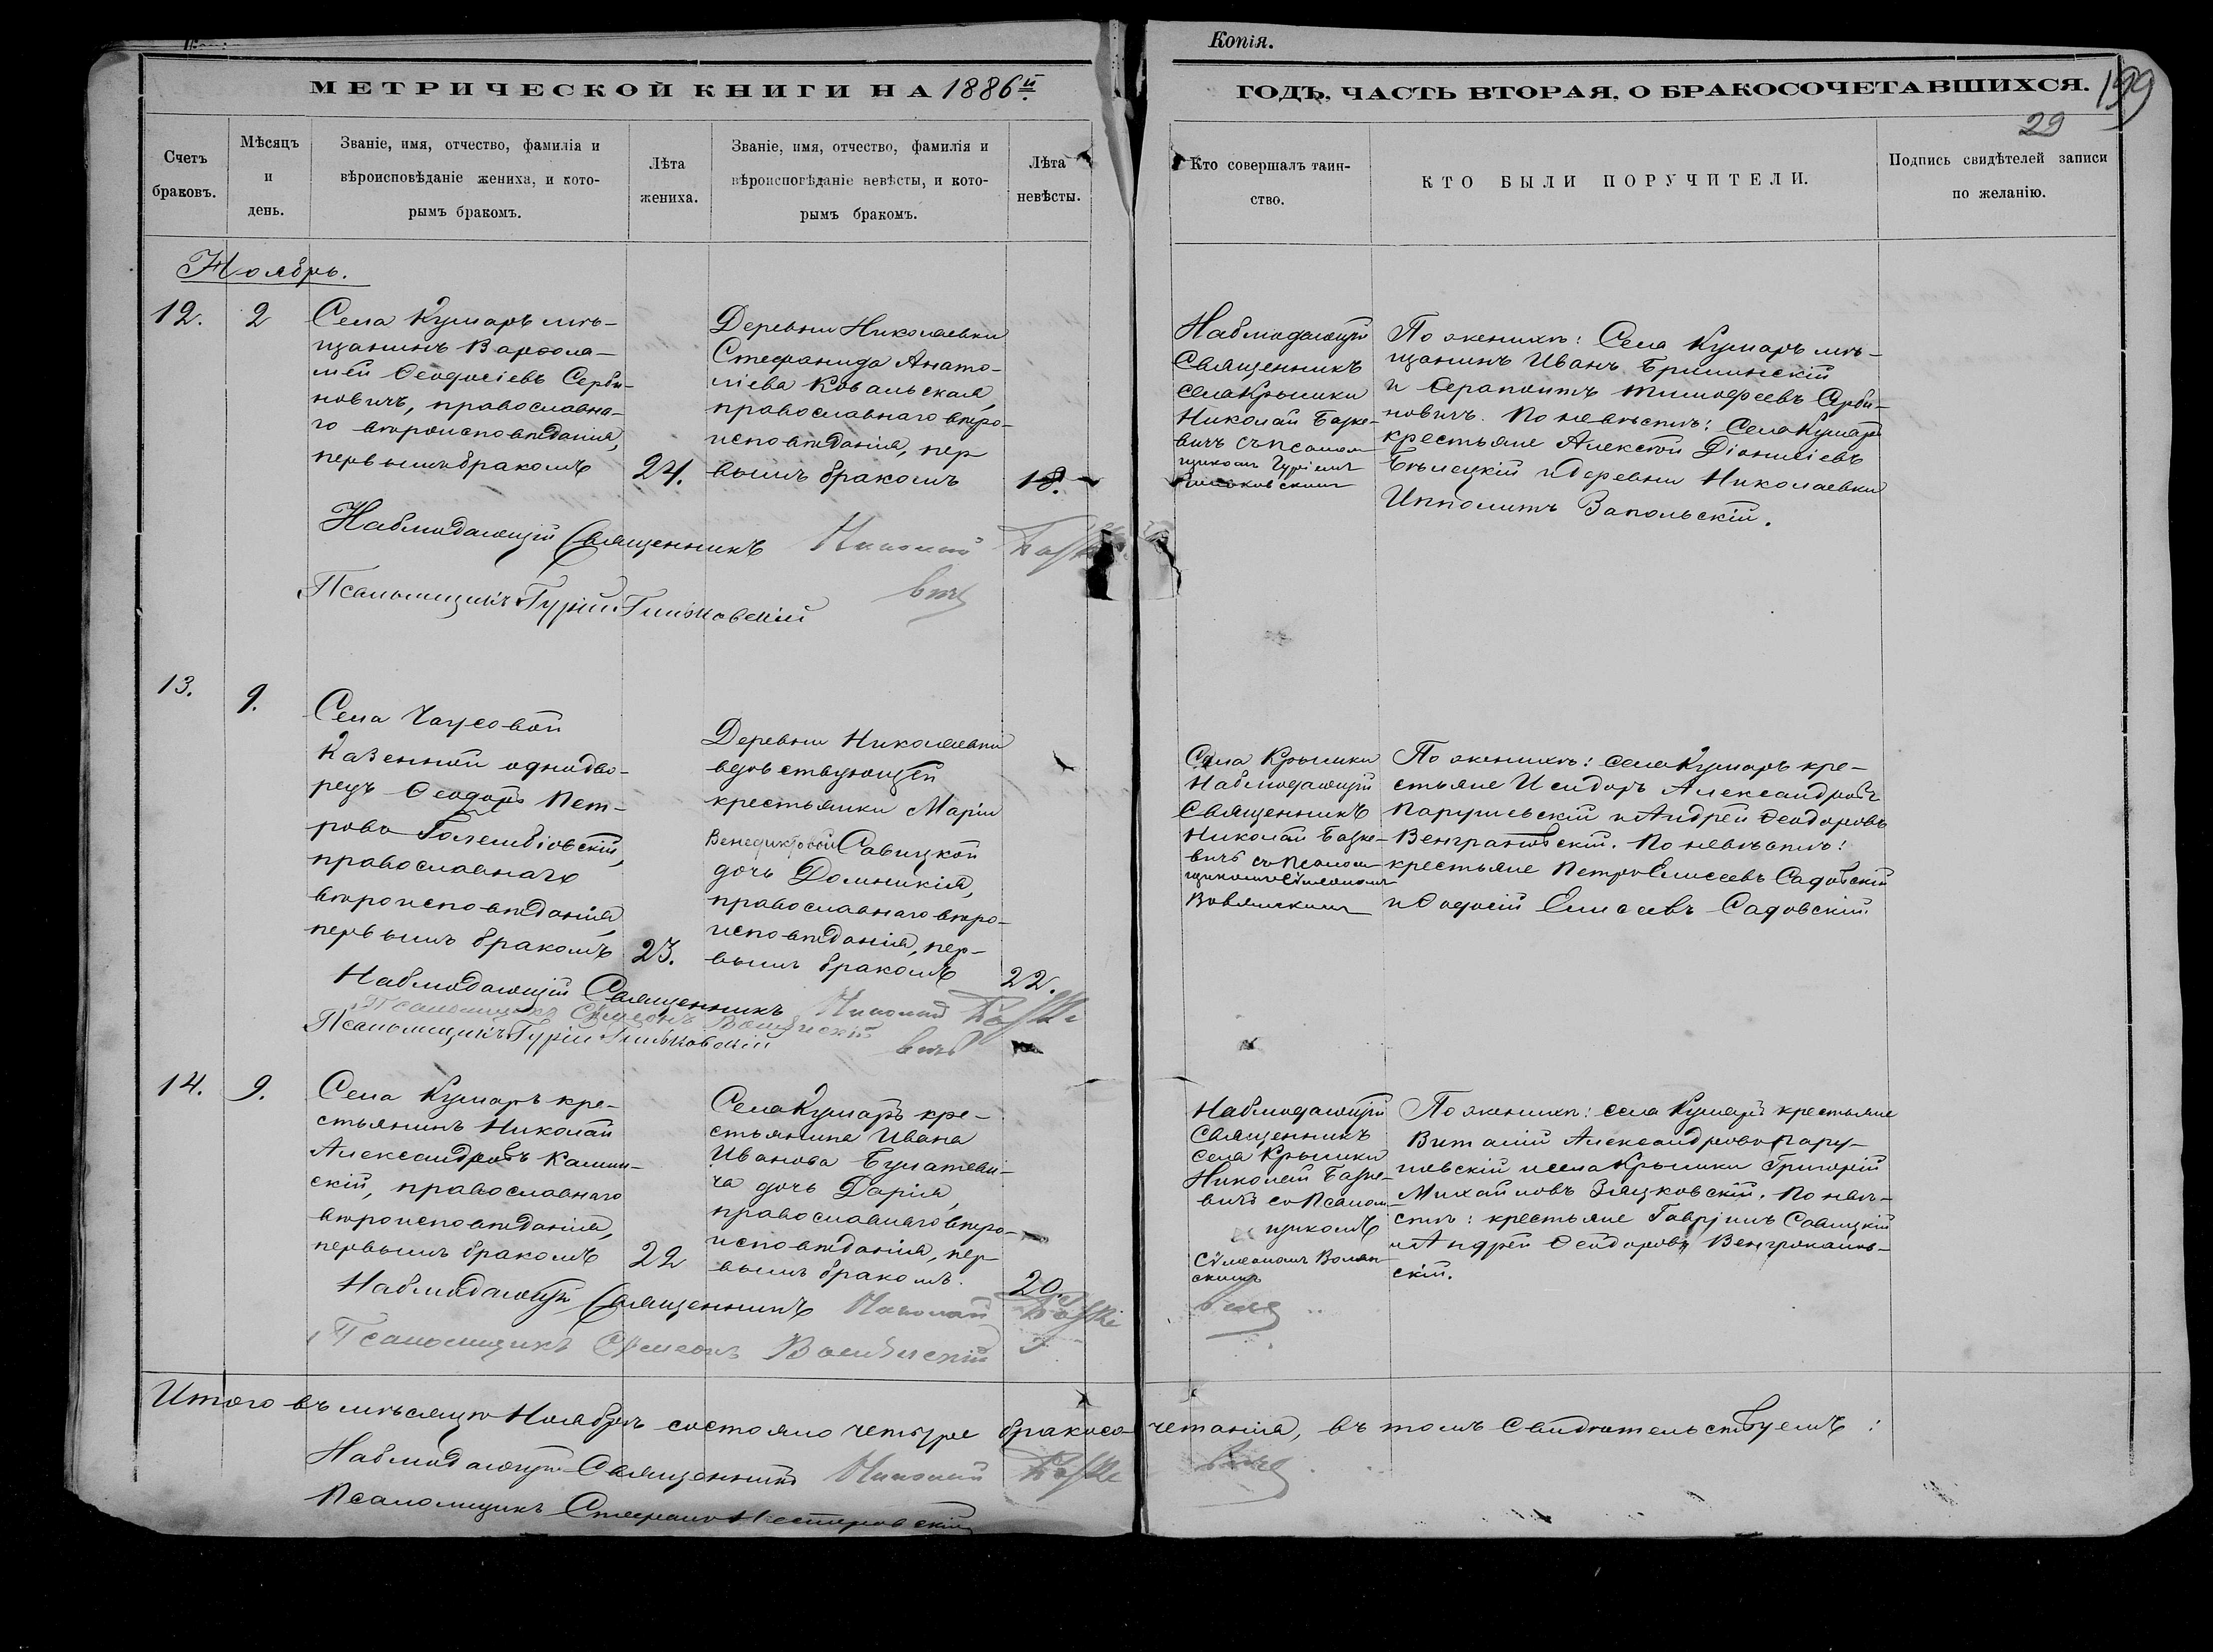 Копія.
МЕТРИЧЕСКОЙ КНИГИ НА 1886й
ГОДЪ, ЧАСТЬ ВТОРАЯ, О БРАКОСОЧЕТАВШИХСЯ.
199
29
Счетъ
браковъ.
Мѣсяцъ
и
день.
Званіе, имя, отчество, фамилія и
вѣроисповѣданіе жениха, и кото-
рымъ бракомъ.
Лѣта
жениха.
Званіе, имя, отчество, фамилія и
вѣроисповѣданіе невѣсты, и кото-
рымъ бракомъ.
Лѣта
невѣсты.
Кто совершалъ таин-
ство.
КТО БЫЛИ ПОРУЧИТЕЛИ.
Подпись свидѣтелей записи
по желанію.
Ноябрь.
12.
2
Села Кумаръ мѣ-
щанинъ Варѳоло-
мей Ѳеодосіевъ Серби-
новичъ, православна-
го вѣроисповѣданія,
первымъ бракомъ
24.
Деревни Николаевки
Стефанида Анато-
ліева Ковальская,
православнаго вѣро-
исповѣданія, пер-
вымъ бракомъ
18.
Наблюдающій
Священникъ
села Крымки
Николай Базке-
вичъ съ псалом
щикомъ Гуріемъ
По женихѣ: Села Кумаръ мѣ-
щанинъ Иванъ Брилинскій
и Серапонтъ Тимофеевъ Серби-
новичъ. По невѣстѣ: Села Кумаръ
крестьяне Алексѣй Діонисіевъ
Бѣлецкій и деревни Николаевки
Ипполитъ Запольскій.
Наблюдающій Священникъ Николай Базке
вичъ
Псаломщикъ Гурій Глинковскій
13.
9.
Села Чаусовой
Казенной однодво-
рецъ Ѳеодоръ Пет-
ровъ Голембіовскій,
православнаго
вѣроисповѣданія,
первымъ бракомъ
23.
Деревни Николаевки
вдовствующей
крестьянки Маріи
Венедиктовой Савицкой
дочь Домникія,
православнаго вѣро-
исповѣданія, пер-
вымъ бракомъ
22.
Села Крымки
Наблюдающій
Священникъ
Николай Базке-
вичъ съ псалом
щикомъ Сѵмеономъ
По женихѣ: села Кумаръ кре-
стьяне Исидоръ Александровъ
Парулевскій и Андрей Ѳеодоровъ
По невѣстѣ:
крестьяне Петръ Елисеевъ Садовскій
и Ѳеодосій Елисеевъ Садовскій.
Наблюдающій Священникъ Николай Базке
вичъ
Псаломщикъ Сѵмеонъ
Псаломщикъ Гурій Глинковскій
14.
9.
Села Кумаръ кре-
стьянинъ Николай
Александровъ Камин-
скій, православнаго
вѣроисповѣданія,
первымъ бракомъ
22
Села Кумаръ кре-
стьянина Ивана
Иванова Булатеви-
ча дочь Дарія,
православнаго вѣро-
исповѣданія, пер-
вымъ бракомъ.
20.
Наблюдающій
Священникъ
Села Крымки
Николай Базке-
вичъ со псалом-
щикомъ
Сѵмеономъ Волян-
скимъ
По женихѣ: села Кумаръ крестьяне
Виталій Александровъ Пару-
левскій и села Крымки Григорій
Михайловъ Зляцковскій. По невѣ-
стѣ: крестьяне Гавріилъ Савицкій
и Андрей Ѳеодоровъ
скій.
Наблюдающій Священникъ Николай Базке
вичъ
Псаломщикъ Сѵмеонъ
Итого въ мѣсяцѣ Ноябрѣ состояло четыре бракосочетанія, въ томъ свидѣтельствуемъ:
Наблюдающій Священникъ Николай Базке
вичъ
Псаломщикъ Стефанъ Нестеровскій